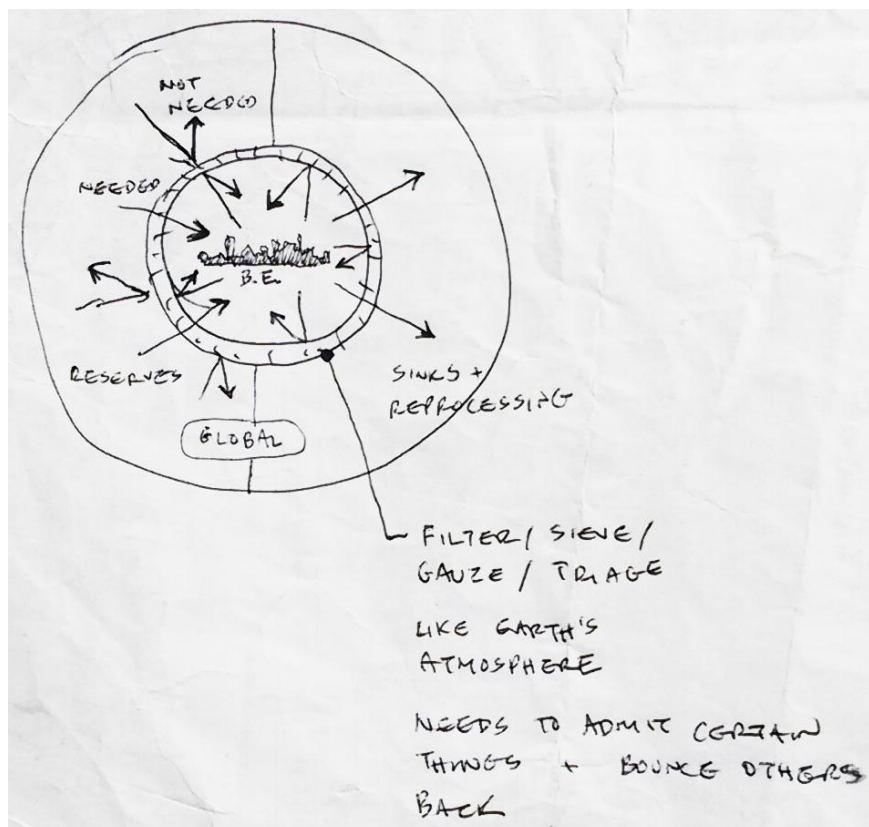 NOT
NEEDED
NEEDED
B.E.
RESERVES
SINKS +
REPROCESSING
GLOBAL
FILTER / SIEVE /
GAUZE / TRIAGE
LIKE EARTH'S
ATMOSPHERE
NEEDS TO ADMIT CERTAIN
THINGS + BOUNCE OTHERS
BACK